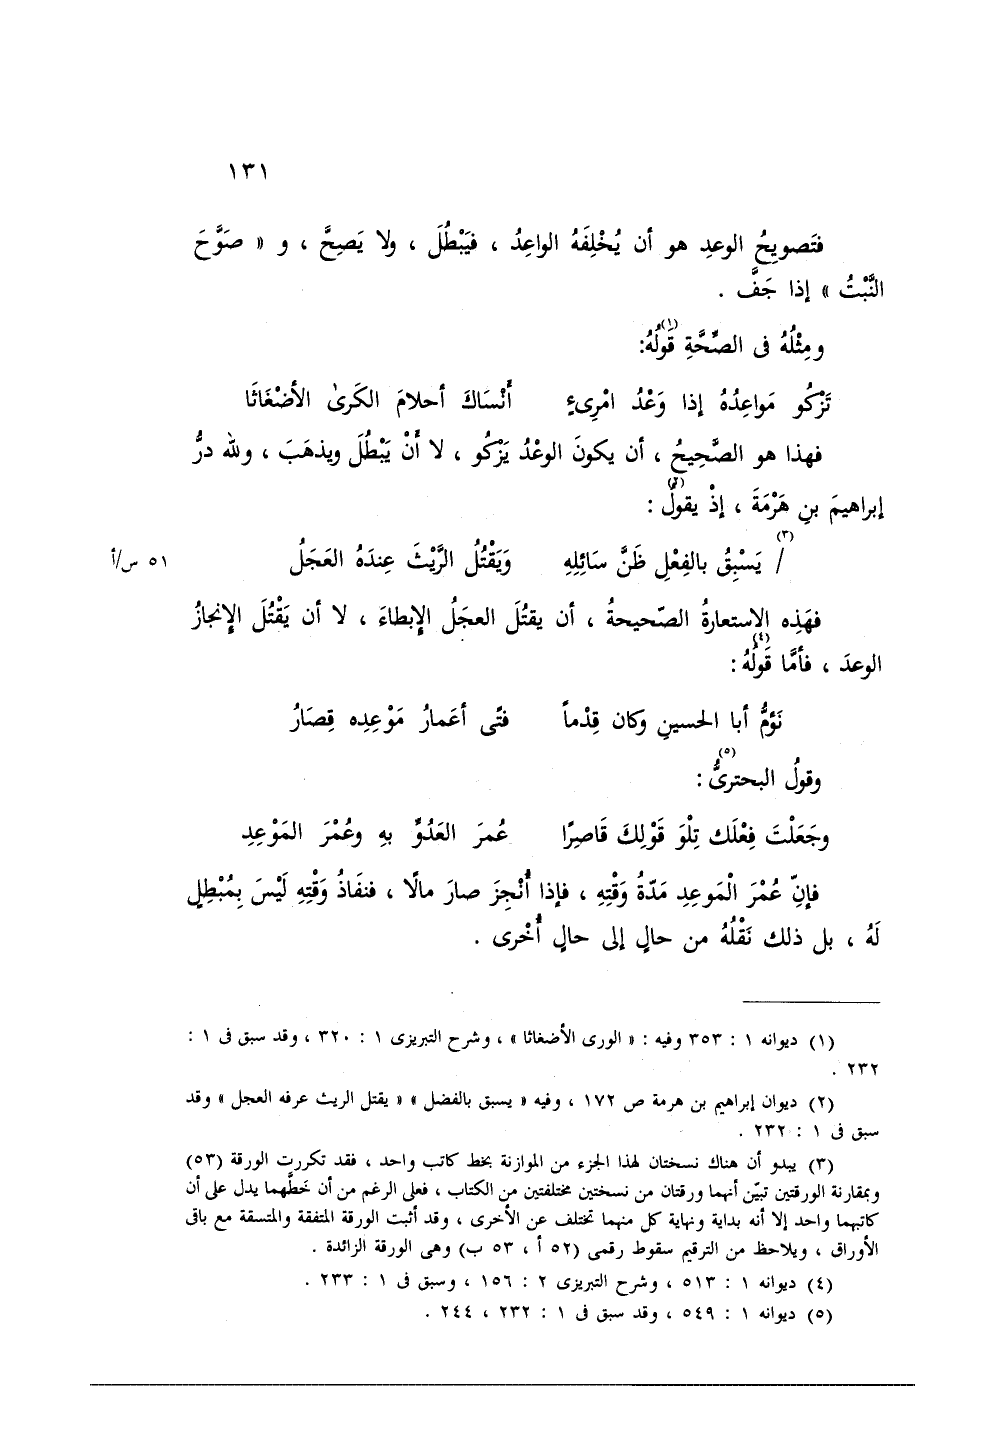 ١٣١
فتَصويحُ الوعدِ هو أن يُخْلِفَهُ الواعِدُ ، فيَبْطُلَ ، ولا يَصِحَّ ، و « صَوَّحَ
النَّبْتُ » إذا جَفَّ .
ومِثْلُهُ فى الصِّحَّةِ قَولُهُ(١):
تَزْكُو مَواعِدُهُ إذا وَعْدُ امْرِىءٍ أَنْسَاكَ أحلامَ الكَرىٰ الأضْغَاثَا
فهذا هو الصَّحِيحُ ، أن يكونَ الوعْدُ يَزْكُو ، لا أَنْ يَبْطُلَ ويذهَبَ ، ولله درُّ
إبراهيمَ بنِ هَرْمَةَ ، إذْ يقولُ(٢) :
(٣)/ يَسْبِقُ بالفِعْلِ ظَنَّ سَائِلِهِ وَيَقْتُلُ الرَّيْثَ عِندَهُ العَجَلُ ٥١ س/أ
فهَذِه الاستعارةُ الصّحيحةُ ، أن يقتُلَ العجَلُ الإبطاءَ ، لا أن يَقْتُلَ الإنجازُ
الوعدَ ، فأمَّا قَولُهُ(٤) :
نَؤمُّ أبا الحسينِ وكان قِدْماً فتًى أعَمارُ مَوْعِدِه قِصَارُ
وقولُ البحترىُّ(٥) :
وجَعَلْتَ فِعْلَك تِلْوَ قَوْلِكَ قَاصِرًا عُمرَ العَدُوِّ بهِ وعُمْرَ المَوْعِدِ
فإنّ عُمْرَ الْمَوعِدِ مَدّةُ وَقْتِهِ ، فإذا أُنْجِزَ صارَ مالًا ، فنفاذُ وَقْتِهِ لَيْسَ بِمُبْطِلٍ
لَهُ ، بل ذلك نَقْلُهُ من حالٍ إلى حالٍ أُخْرى .
(١) ديوانه ١ : ٣٥٣ وفيه : « الورى الأضغاثا » ، وشرح التبريزى ١ : ٣٢٠ ، وقد سبق فى ١ :
٢٣٢ .
(٢) ديوان إبراهيم بن هرمة ص ١٧٢ ، وفيه « يسبق بالفضل » « يقتل الريث عرفه العجل » وقد
سبق فى ١ : ٢٣٢ .
(٣) يبدو أن هناك نسختان لهذا الجزء من الموازنة بخط كاتب واحد ، فقد تكررت الورقة (٥٣)
وبمقارنة الورقتين تبيّن أنهما ورقتان من نسختين مختلفتين من الكتاب ، فعلى الرغم من أن خَطَّهما يدل على أن
كاتبهما واحد إلا أنه بداية ونهاية كل منهما تختلف عن الأخرى ، وقد أثبت الورقة المتفقة والمتسقة مع باقى
الأوراق ، ويلاحظ من الترقيم سقوط رقمى (٥٢ أ ، ٥٣ ب) وهى الورقة الزائدة .
(٤) ديوانه ١ : ٥١٣ ، وشرح التبريزى ٢ : ١٥٦ ، وسبق فى ١ : ٢٣٣ .
(٥) ديوانه ١ : ٥٤٩ ، وقد سبق فى ١ : ٢٣٢ ، ٢٤٤ .